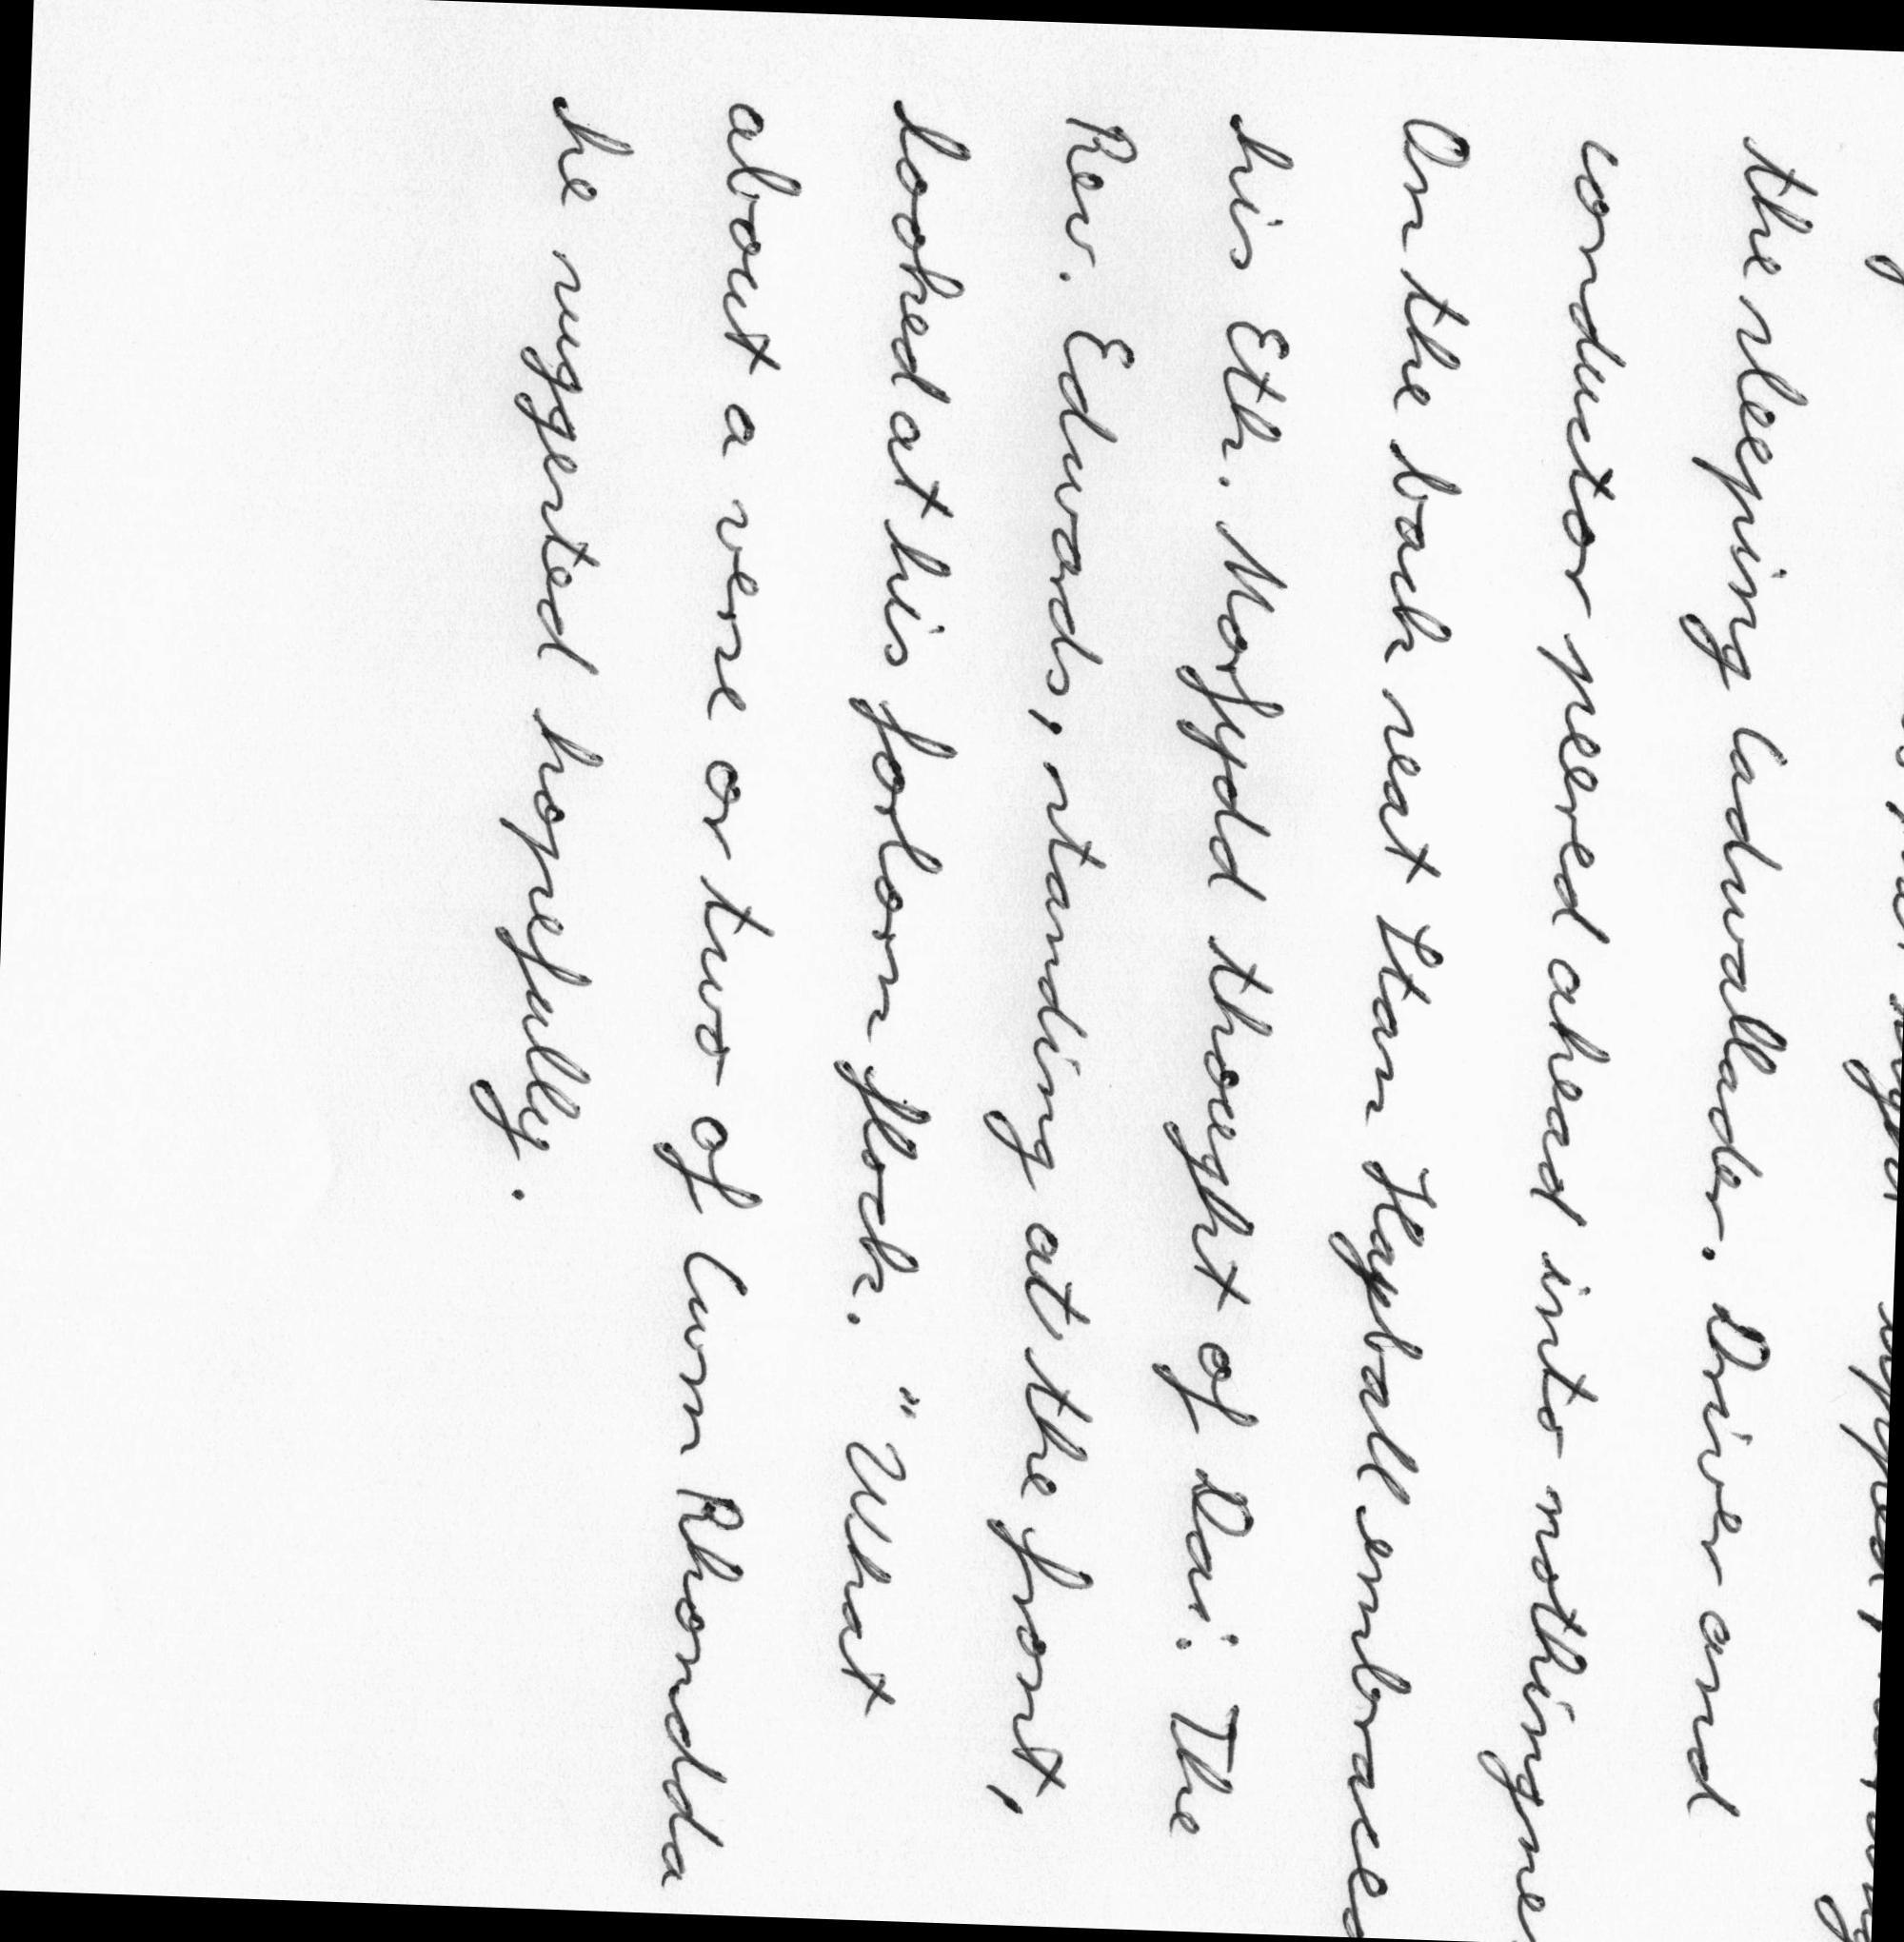 the sleeping Cadwallader. Driver and
conductor peered ahead into nothingne
On the back seat Stan Hapball embraced
his Eth. Morfydd thought of Dai. The
Rev. Edwards, standing at the front,
looked at his forlorn flock. "What
about a verse or two of Cwm Rhondda
he suggested hopefully.